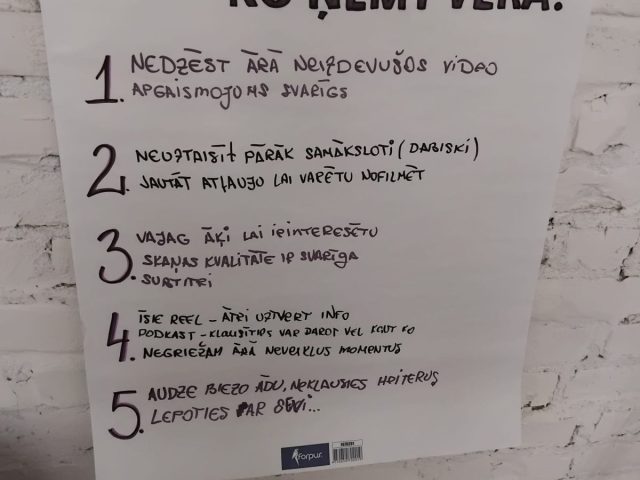 KO ŅEMT VĒRĀ!
1. NEDZĒST ĀRĀ NEIZDEVUŠOS VIDEO
APGAISMOJUMS SVARĪGS
2. NEUZTAISĪT PĀRĀK SAMĀKSLOTI (DABISKI)
JAUTĀT ATĻAUJU LAI VARĒTU NOFILMĒT
3. VAJAG ĀĶI LAI IEINTERESĒTU
SKAŅAS KVALITĀTE IR SVARĪGA
SUBTITRI
4. ĪSIE REEL - ĀTRI UZTVERT INFO
PODKAST - KLAUSĪTIES VAR DAROT VĒL KAUT KO
NEGRIEŽAM ĀRĀ NEVEIKLUS MOMENTUS
5. AUDZĒ BIEZO ĀDU, NEKLAUSIES HEITERUS
LEPOTIES PAR SEVI...
forpus